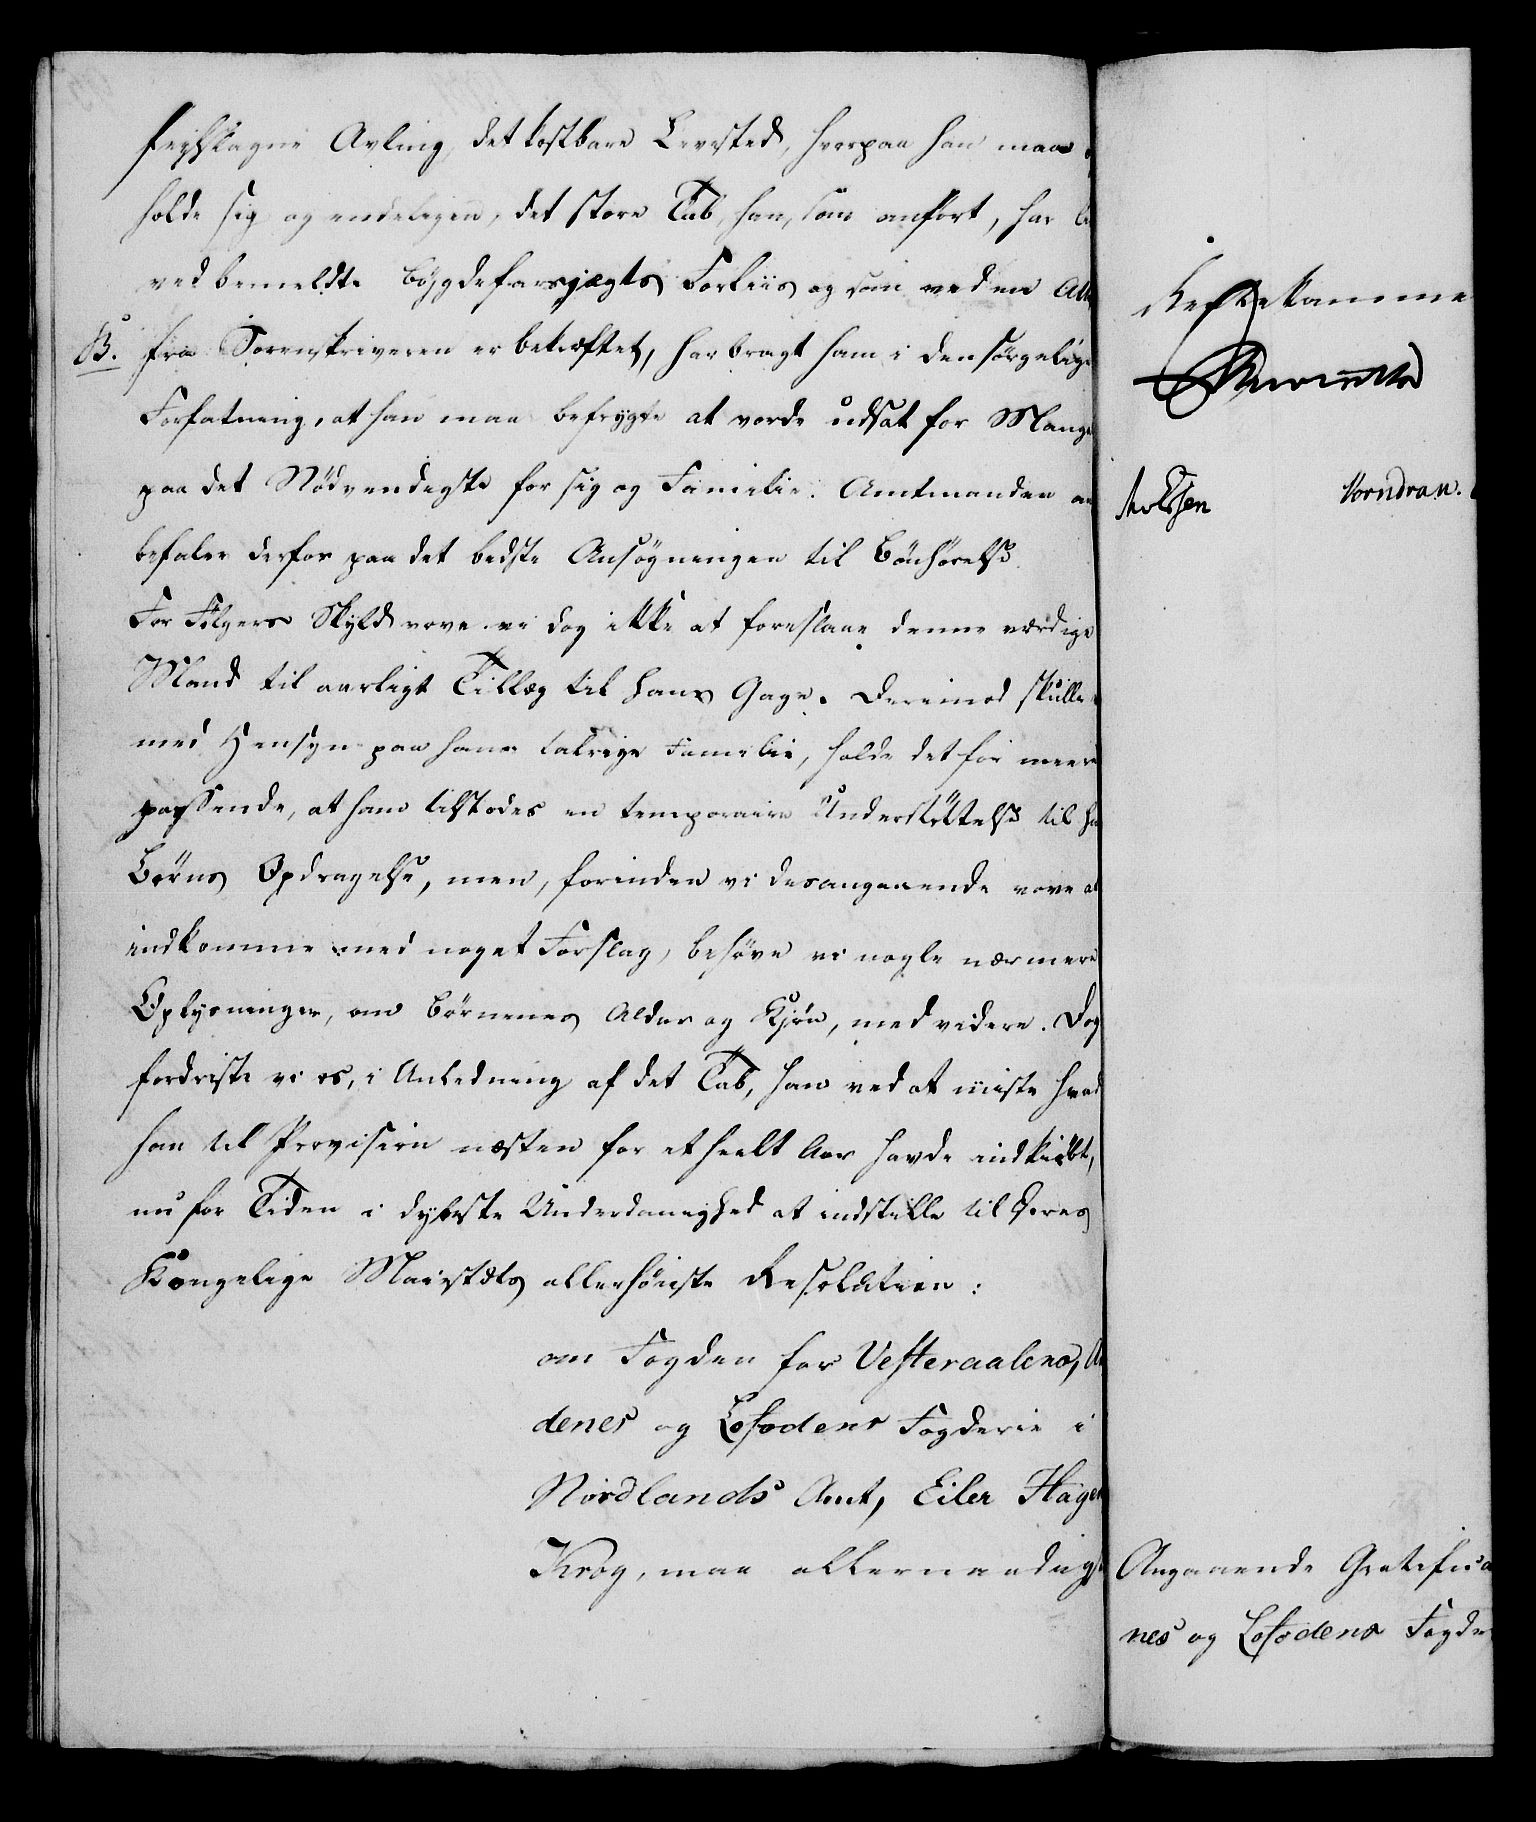 feilslagne Avling, det kostbare Levested, hvorpaa han maae
holde sig og endeligen, det store Tab, han, som anført, har
ved bemeldte Bøygdefarsjægts Forliis og som ved en
B. fra Sorenskriveren er bekræftet, har bragt ham i den sørgelige
Forfatning, at han maa befrygte at vorde udsat for Mang
paa det Nødvendigste for sig og Familie. Amtmanden an
befaler derfor paa det bedste Ansøgningen til Bønhørelse.
For Følgers Skyld vove vi dog ikke at foreslaae denne værdige
Mand til aarligt Tillæg til hans Gage. Derimod skulle
med Hensyn paa hans talrige Familie, holde det for meere
passende, at ham tilstodes en temporaire Understøttelse til ha
Børns Opdragelse, men, forinden vi desangaaende vove at
indkomme med noget Forslag, behøve vi nogle nærmere
Oplysninger, om Børnenes Alder og Kjøn, med videre. Dog
fordriste vi os, i Anledning af det Tab, han ved at miste hvad
han til Provision næsten for et heelt Aar havde indkiøbt,
nu for Tiden i dybeste Underdanighed at indstille til Deres
Kongelige Maiestæts allerhøieste Resolution:
om Fogden for Vesteraalens, An
denes og Lofodens Fogderie i
Nordlands Amt, Eiler Hagen
Krog, maa allernaadigst
Rentekamme
Vorndran.
Angaaende Gratifica
nes og Lofodens Fogde